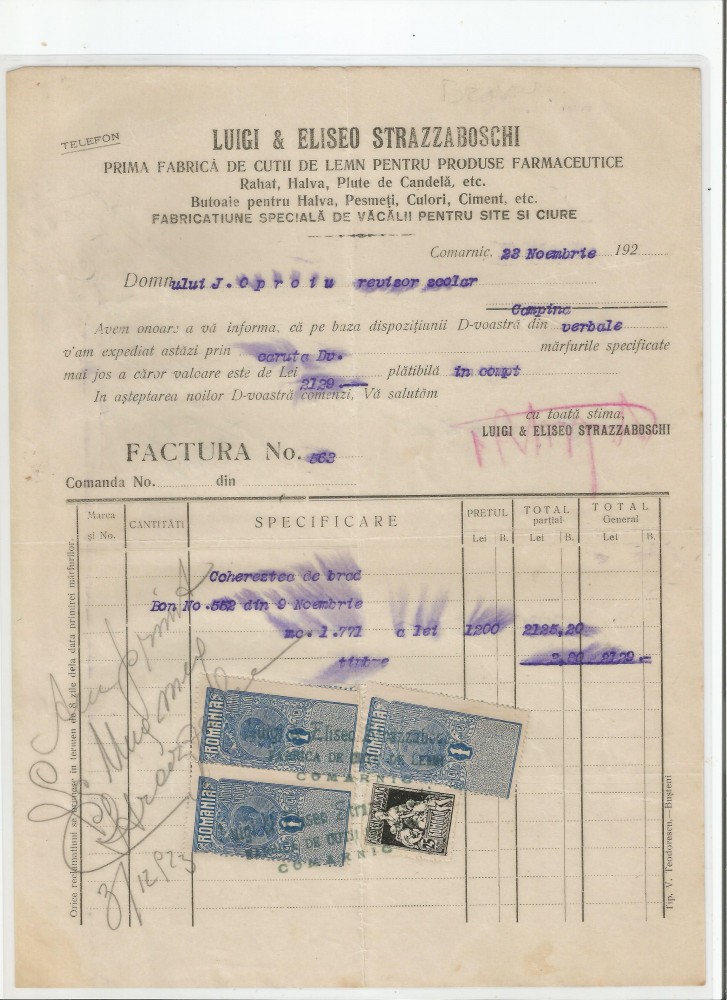 TELEFON
LUIGI & ELISEO STRAZZABOSCHI
PRIMA FABRICĂ DE CUTII DE LEMN PENTRU PRODUSE FARMACEUTICE
Rahat, Halva, Plute de Candelă, etc.
Butoaie pentru Halva, Pesmeți, Culori, Ciment, etc.
FABRICATIUNE SPECIALĂ DE VĂCĂLII PENTRU SITE SI CIURE
Comarnic, 22 Noembrie 192
Domnului J. Oproiu revizor scolar
Campina
Avem onoare a vă informa, că pe baza dispozițiunii D-voastră din verbale
v'am expediat astăzi prin caruta Dv. mărfurile specificate
mai jos a căror valoare este de Lei 2129.— plătibilă in compt
In așteptarea noilor D-voastră comenzi, Vă salutăm
cu toată stima,
LUIGI & ELISEO STRAZZABOSCHI
FACTURA No. 563
Comanda No. din
Marca și No. CANTITĂTI SPECIFICARE PRETUL TOTAL parțial TOTAL General
Lei B. Lei B. Lei B.
Cohereztea de brad
Bon No. 552 din 9 Noembrie
mc. 1.771 a lei 1200 2125,20
timbre 2129.—
ROMANIA 1
ROMANIA 1
ROMANIA 1
Eliseo Strazzabo
FABRICA DE DE LEMN
COMARNIC
DE CUTII
COMARNIC
3/12 923
Orice reclamațiuni se primesc în termen de 8 zile dela data primirei mărfurilor.
Tip. V. Teodorescu.—Bușteni